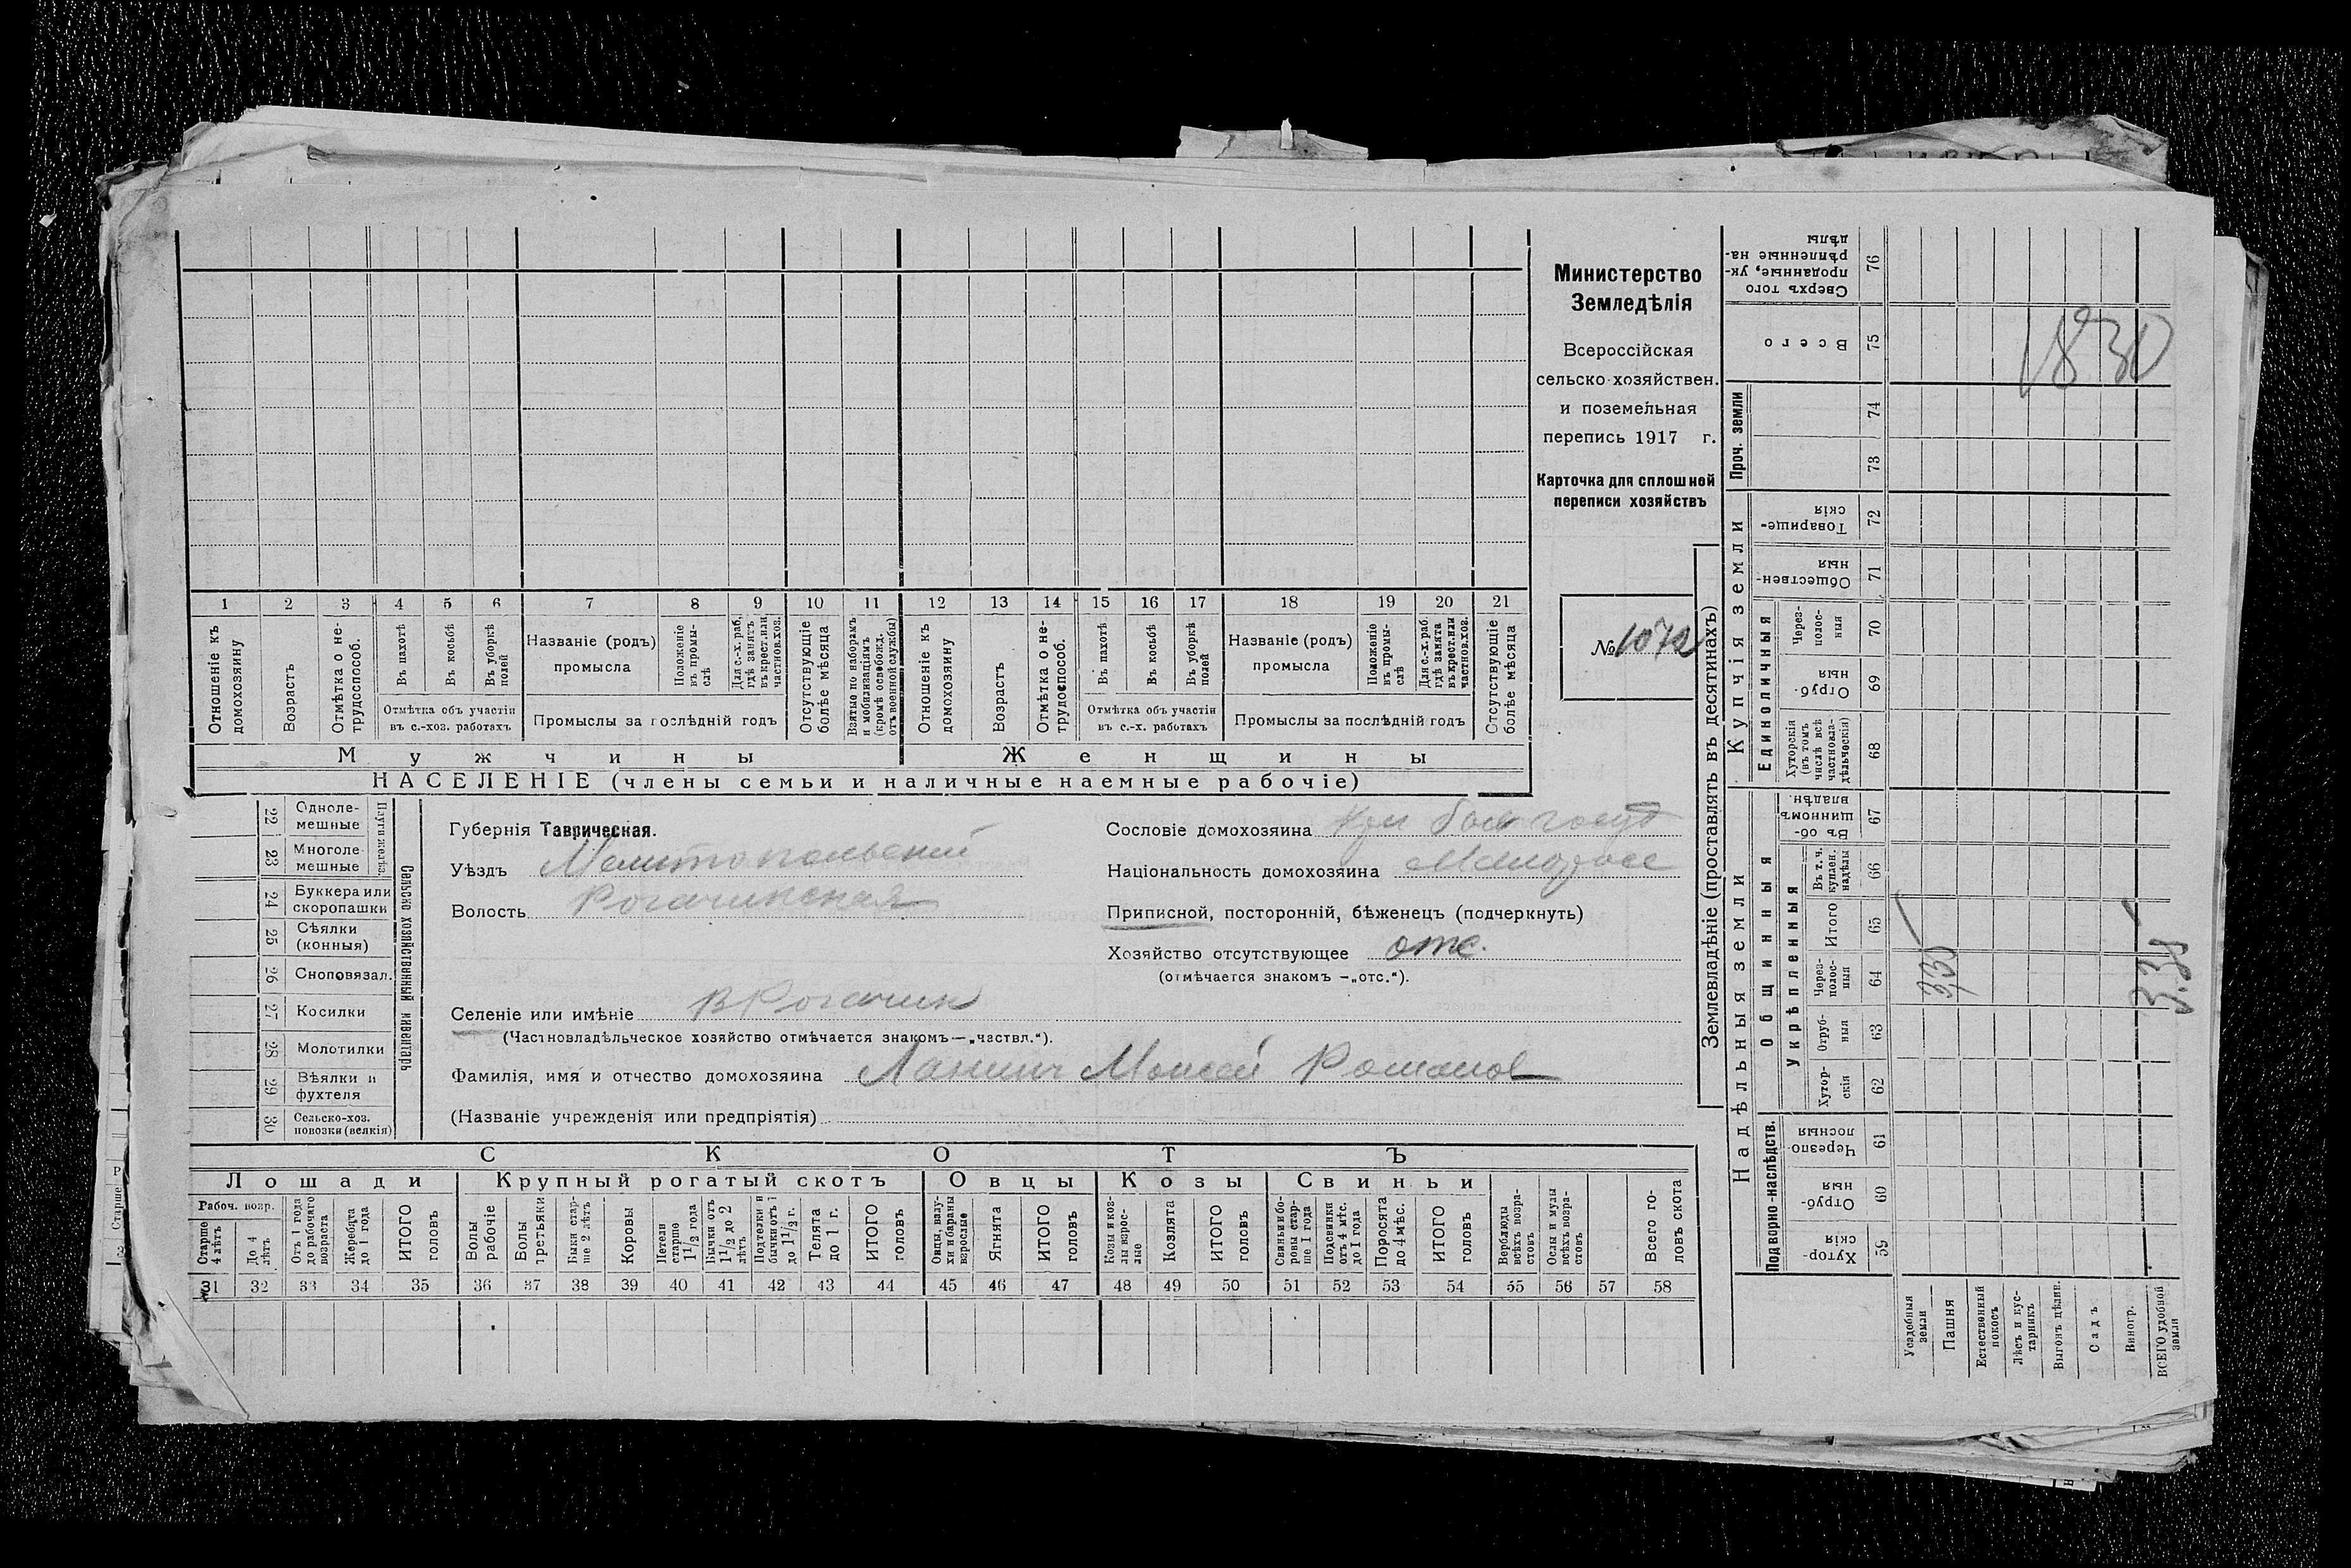 Министерство
Земледѣлія
Всероссійская
сельско-хозяйствен.
и поземельная
перепись 1917 г.
Карточка для сплошной
переписи хозяйствъ
№ 1072
1 2 3 4 5 6 7 8 9 10 11 12 13 14 15 16 17 18 19 20 21
Отношеніе къ домохозяину
Возрастъ
Отмѣтка о не-трудоспособ.
Въ пахотѣ
Въ косьбѣ
Въ уборкѣ полей
Отмѣтка объ участіи въ с.-хоз. работахъ
Названіе (родъ) промысла
Положеніе въ промы-слѣ
Для с.-х. раб. гдѣ занятъ въ крест. или частнов. хоз.
Промыслы за послѣдній годъ
Отсутствующіе болѣе мѣсяца
Взятые по наборамъ и мобилизаціямъ (кромѣ освобожд. отъ военной службы)
Отношеніе къ домохозяину
Возрастъ
Отмѣтка о не-трудоспособ.
Въ пахотѣ
Въ косьбѣ
Въ уборкѣ полей
Отмѣтка объ участіи въ с.-х. работахъ
Названіе (родъ) промысла
Положеніе въ промы-слѣ
Для с.-х. раб. гдѣ занята въ крест. или частнов. хоз.
Промыслы за послѣдній годъ
Отсутствующіе болѣе мѣсяца
Мужчины Женщины
НАСЕЛЕНІЕ (члены семьи и наличные наемные рабочіе)
Сельско хозяйственный инвентарь
Плуги желѣз.
22 Одноле-мешные
23 Многоле-мешные
24 Буккера или скоропашки
25 Сѣялки (конныя)
26 Сноповязал.
27 Косилки
28 Молотилки
29 Вѣялки и фухтеля
30 Сельско-хоз. повозки (всякія)
Губернія Таврическая.
Уѣздъ Мелитопольский
Волость Рогачикская
Сословіе домохозяина
Національность домохозяина Малоросс
Приписной, посторонній, бѣженецъ (подчеркнуть)
Хозяйство отсутствующее отс.
(отмѣчается знакомъ —„отс.“).
Селеніе или имѣніе В Рогачик
(Частновладѣльческое хозяйство отмѣчается знакомъ—„частвл.“).
Фамилія, имя и отчество домохозяина Ланинъ Моисей Романов
(Названіе учрежденія или предпріятія)
СКОТЪ
Лошади Крупный рогатый скотъ Овцы Козы Свиньи
Рабоч. возр.
Старше 4 лѣтъ
До 4 лѣтъ
Отъ 1 года до рабочаго возраста
Жеребята до 1 года
ИТОГО головъ
Волы рабочіе
Волы третьяки
Быки стар-ше 2 лѣтъ
Коровы
Нетели старше 1 1/2 года
Бычки отъ 1 1/2 до 2 лѣтъ
Подтелки и бычки отъ 1 до 1 1/2 г.
Телята до 1 г.
ИТОГО головъ
Овцы, валу-хи и бараны взрослые
Ягнята
ИТОГО головъ
Козы и коз-лы взрос-лые
Козлята
ИТОГО головъ
Свиньи и бо-ровы стар-ше 1 года
Подсвинки отъ 4 мѣс. до 1 года
Поросята до 4 мѣс.
ИТОГО головъ
Верблюды всѣхъ возра-стовъ
Ослы и мулы всѣхъ возра-стовъ
Всего го-ловъ скота
31 32 33 34 35 36 37 38 39 40 41 42 43 44 45 46 47 48 49 50 51 52 53 54 55 56 57 58
Землевладѣніе (проставлять въ десятинахъ)
Надѣльныя земли
Купчія земли
Проч. земли
Подворно-наслѣдств.
Общинныя
Укрѣпленныя
Единоличныя
Сверхъ того проданные, ук-рѣпленные на-дѣлы 76
Всего 75
74
73
Товарище-скія 72
Обществен-ныя 71
Через-полос-ныя 70
Отруб-ныя 69
Хуторскія (въ томъ числѣ всѣ частновла-дѣльческія) 68
Въ об-щинномъ владѣн. 67
Въ т. ч. куплен. надѣлы 66
Итого 65
Через-полос-ныя 64
Отруб-ныя 63
Хутор-скія 62
Черезпо-лосныя 61
Отруб-ныя 60
Хутор-скія 59
Усадебныя земли
Пашня
Естественный покосъ
Лѣсъ и кус-тарникъ
Выгонъ цѣлин.
Садъ
Виногр.
ВСЕГО удобной земли
1830
3,35
3.35